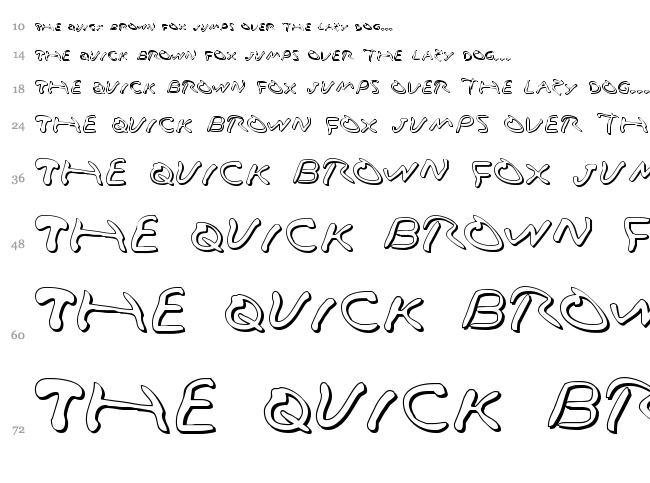 10 THE QUICK BROWN FOX JUMPS OVER THE LAZY DOG...
14 THE QUICK BROWN FOX JUMPS OVER THE LAZY DOG...
18 THE QUICK BROWN FOX JUMPS OVER THE LAZY DOG...
24 THE QUICK BROWN FOX JUMPS OVER TH
36 THE QUICK BROWN FOX JUM
48 THE QUICK BROWN F
60 THE QUICK BROW
72 THE QUICK BR